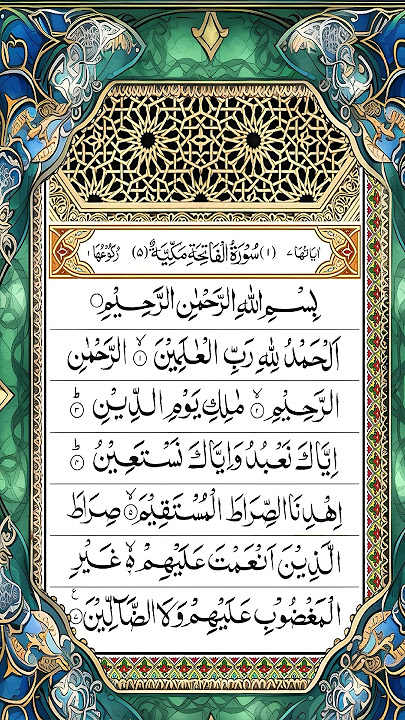 اٰیَاتُهَا ٧ (١) سُوْرَةُ الْفَاتِحَةِ مَكِّیَّةٌ (٥) رُكُوْعُهَا ١
بِسْمِ اللهِ الرَّحْمٰنِ الرَّحِیْمِ ○
اَلْحَمْدُ لِلهِ رَبِّ الْعٰلَمِیْنَ ۙ﴿١﴾ الرَّحْمٰنِ
الرَّحِیْمِ ۙ﴿٢﴾ مٰلِكِ یَوْمِ الدِّیْنِ ؕ﴿٣﴾
اِیَّاكَ نَعْبُدُ وَاِیَّاكَ نَسْتَعِیْنُ ؕ﴿٤﴾
اِهْدِنَا الصِّرَاطَ الْمُسْتَقِیْمَ ۙ﴿٥﴾ صِرَاطَ
الَّذِیْنَ اَنْعَمْتَ عَلَیْهِمْ ۙ۬﴿٦﴾ غَیْرِ
الْمَغْضُوْبِ عَلَیْهِمْ وَلَا الضَّآلِّیْنَ ﴿٧﴾ ع